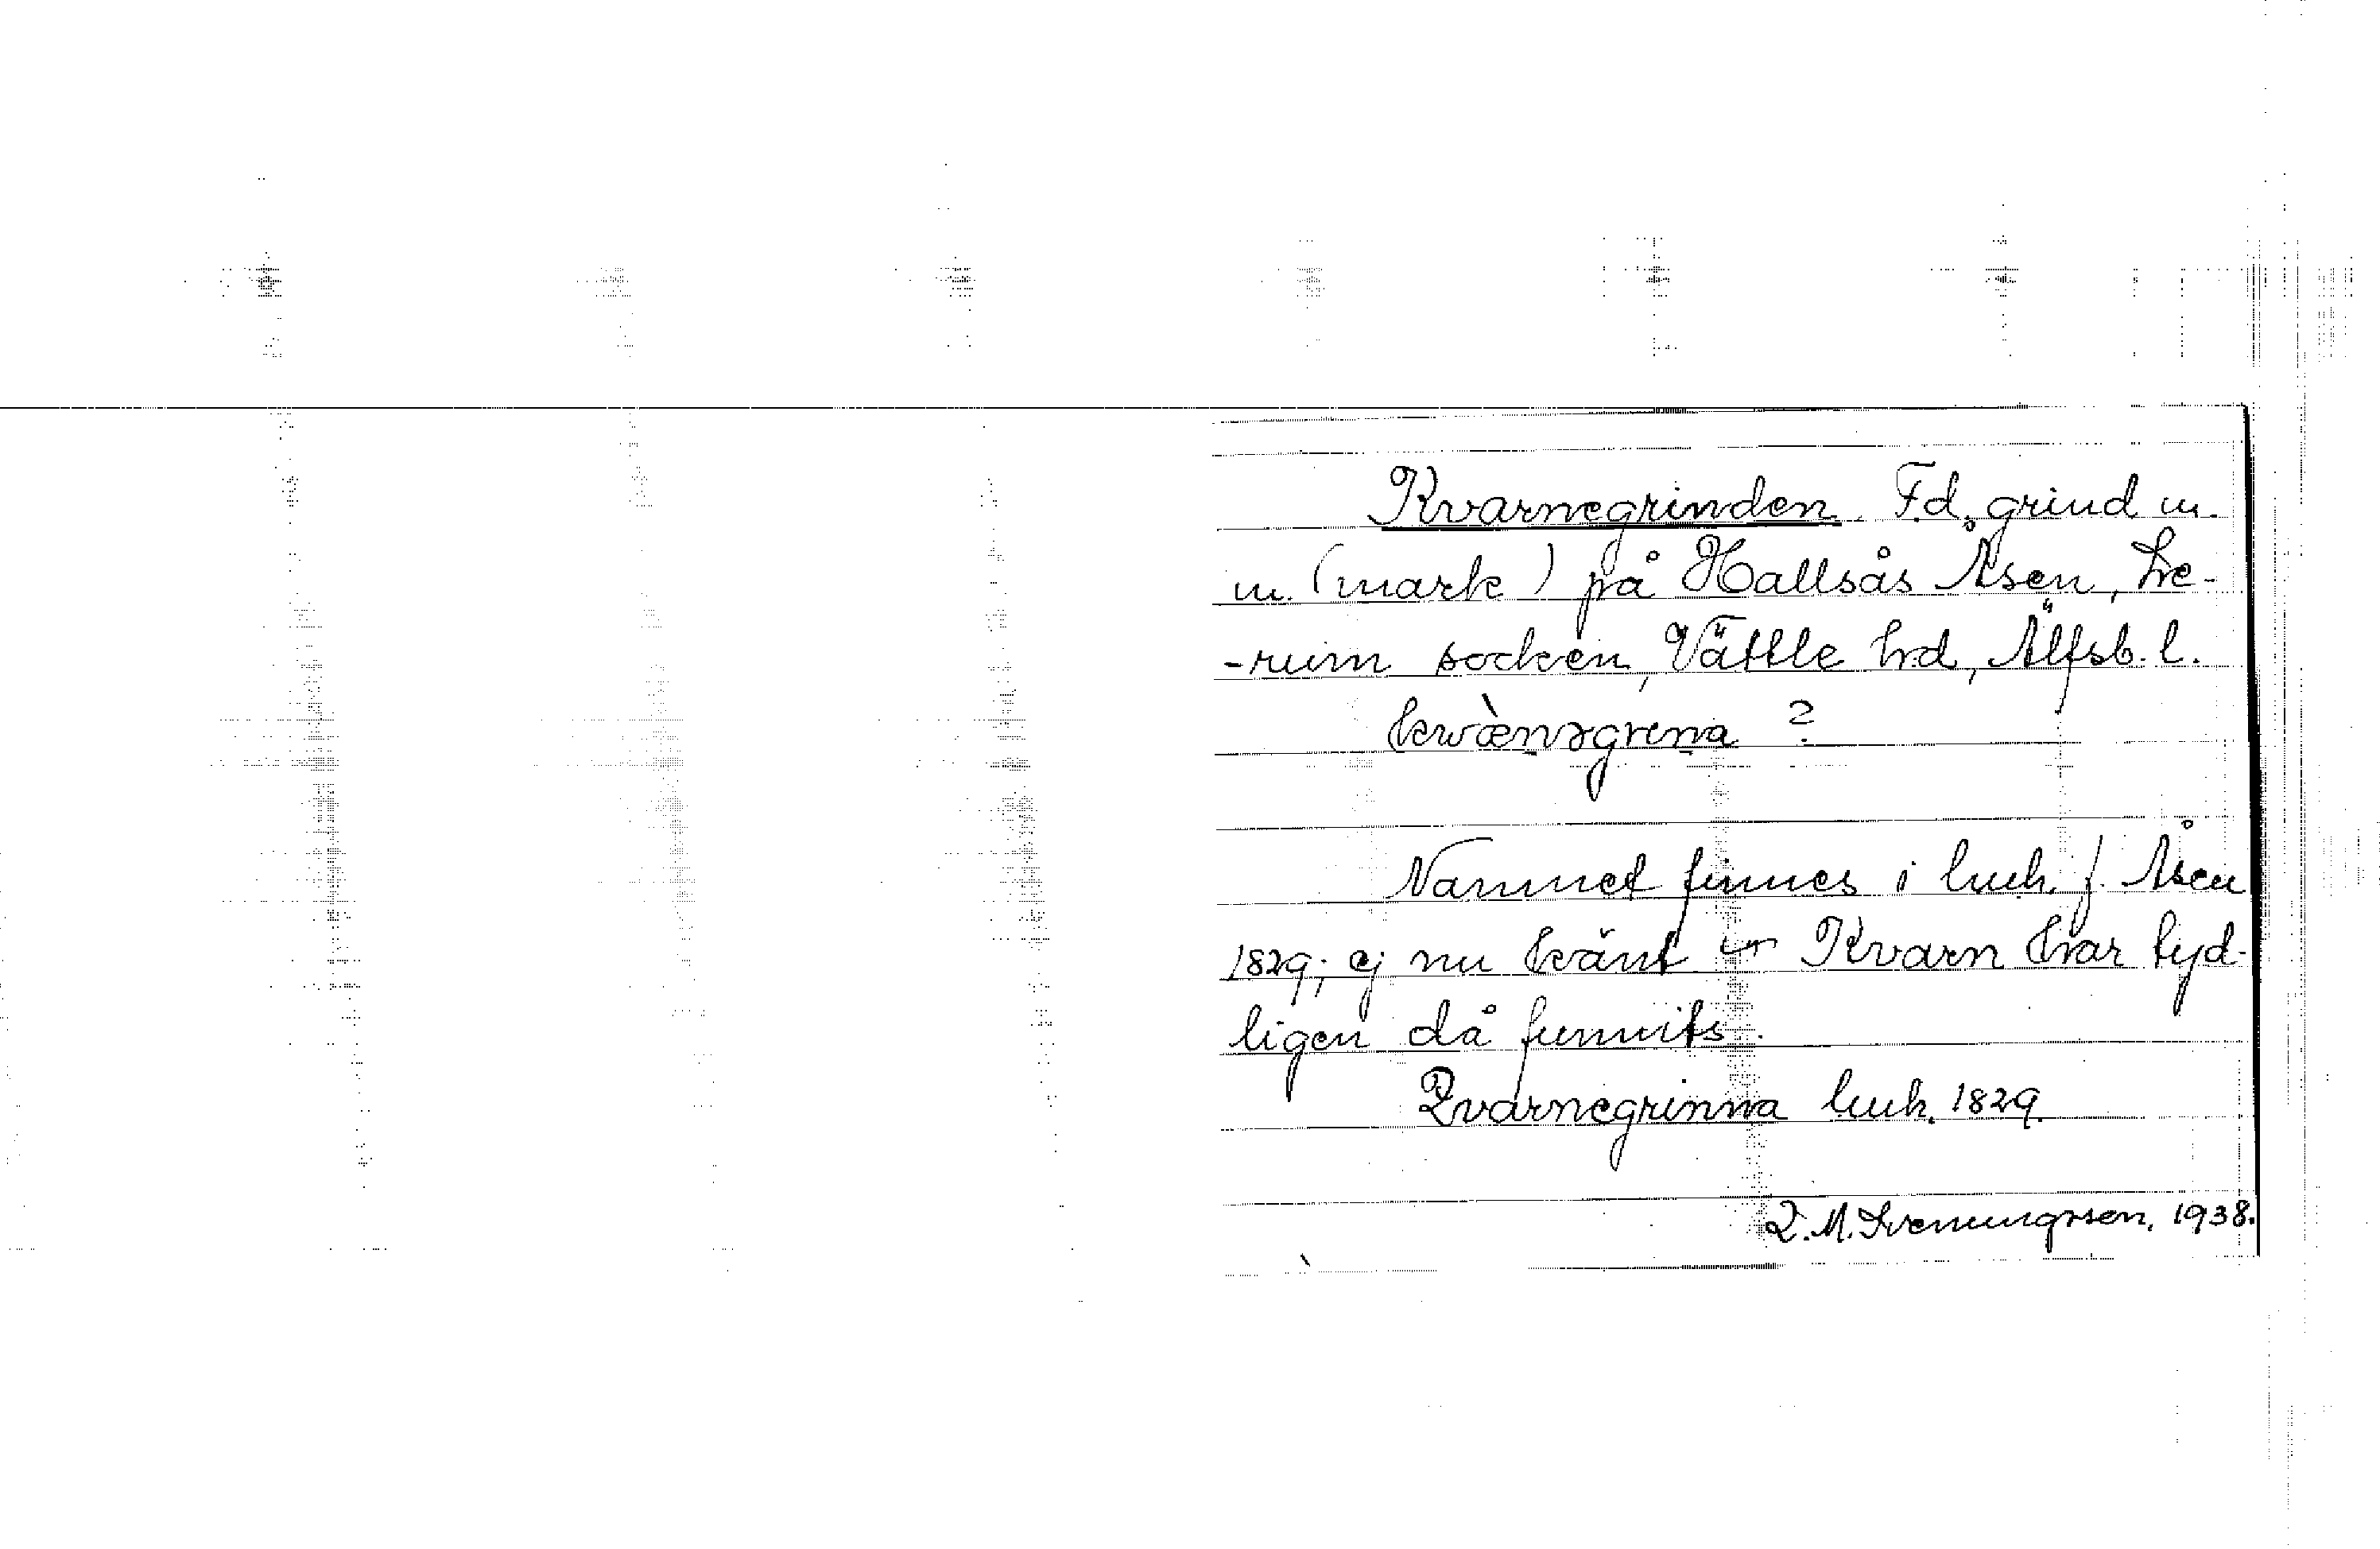 Kvarnegrinden. F.d. grind m.
m. (mark) på Hallsås Åsen, Le-
-rum socken, Vättle hd, Älfsb. l.
kwæ̀nəgrena ?
Namnet finnes i luh. f. Åsen
1829; ej nu känt Kvarn har tyd-
ligen då funnits.
Qvarnegrinna luh. 1829.
M. Svenungsson, 1938.